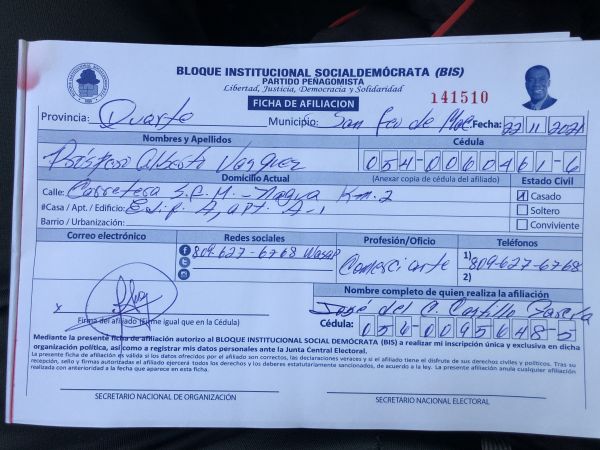 BLOQUE INSTITUCIONAL SOCIALDEMÓCRATA (BIS)
PARTIDO PEÑAGOMISTA
Libertad, Justicia, Democracia y Solidaridad
FICHA DE AFILIACION
141510
Provincia: Duarte Municipio: San Fco de Mac. Fecha: 22 11 2021
Nombres y Apellidos Cédula
Alberti Vasquez 054-0060461-6
Domicilio Actual (Anexar copia de cédula del afiliado) Estado Civil
Calle: Carretera S.F.M.-Nagua Km.2 X Casado
#Casa / Apt. / Edificio: Edif. A, apt. A-1 Soltero
Barrio / Urbanización: Conviviente
Correo electrónico Redes sociales Profesión/Oficio Teléfonos
809-627-6768 Wasap Comerciante 1) 809-627-6768
2)
Nombre completo de quien realiza la afiliación
x José del C. Castillo
Firma del afiliado (Firme igual que en la Cédula) Cédula: 056-0095648-5
Mediante la presente ficha de afiliación autorizo al BLOQUE INSTITUCIONAL SOCIAL DEMÓCRATA (BIS) a realizar mi inscripción única y exclusiva en dicha
organización política, así como a registrar mis datos personales ante la Junta Central Electoral.
La presente ficha de afiliación es válida si los datos ofrecidos por el afiliado son correctos, las declaraciones veraces y si el afiliado tiene el disfrute de sus derechos civiles y políticos. Tras su
recepción, sello y firmas autorizadas el afiliado ejercerá todos los derechos y los deberes estatutariamente sancionados, de acuerdo a la ley. La presente afiliación anula cualquier afiliación
realizada con anterioridad a la fecha que aparece en esta ficha.
SECRETARIO NACIONAL DE ORGANIZACIÓN SECRETARIO NACIONAL ELECTORAL